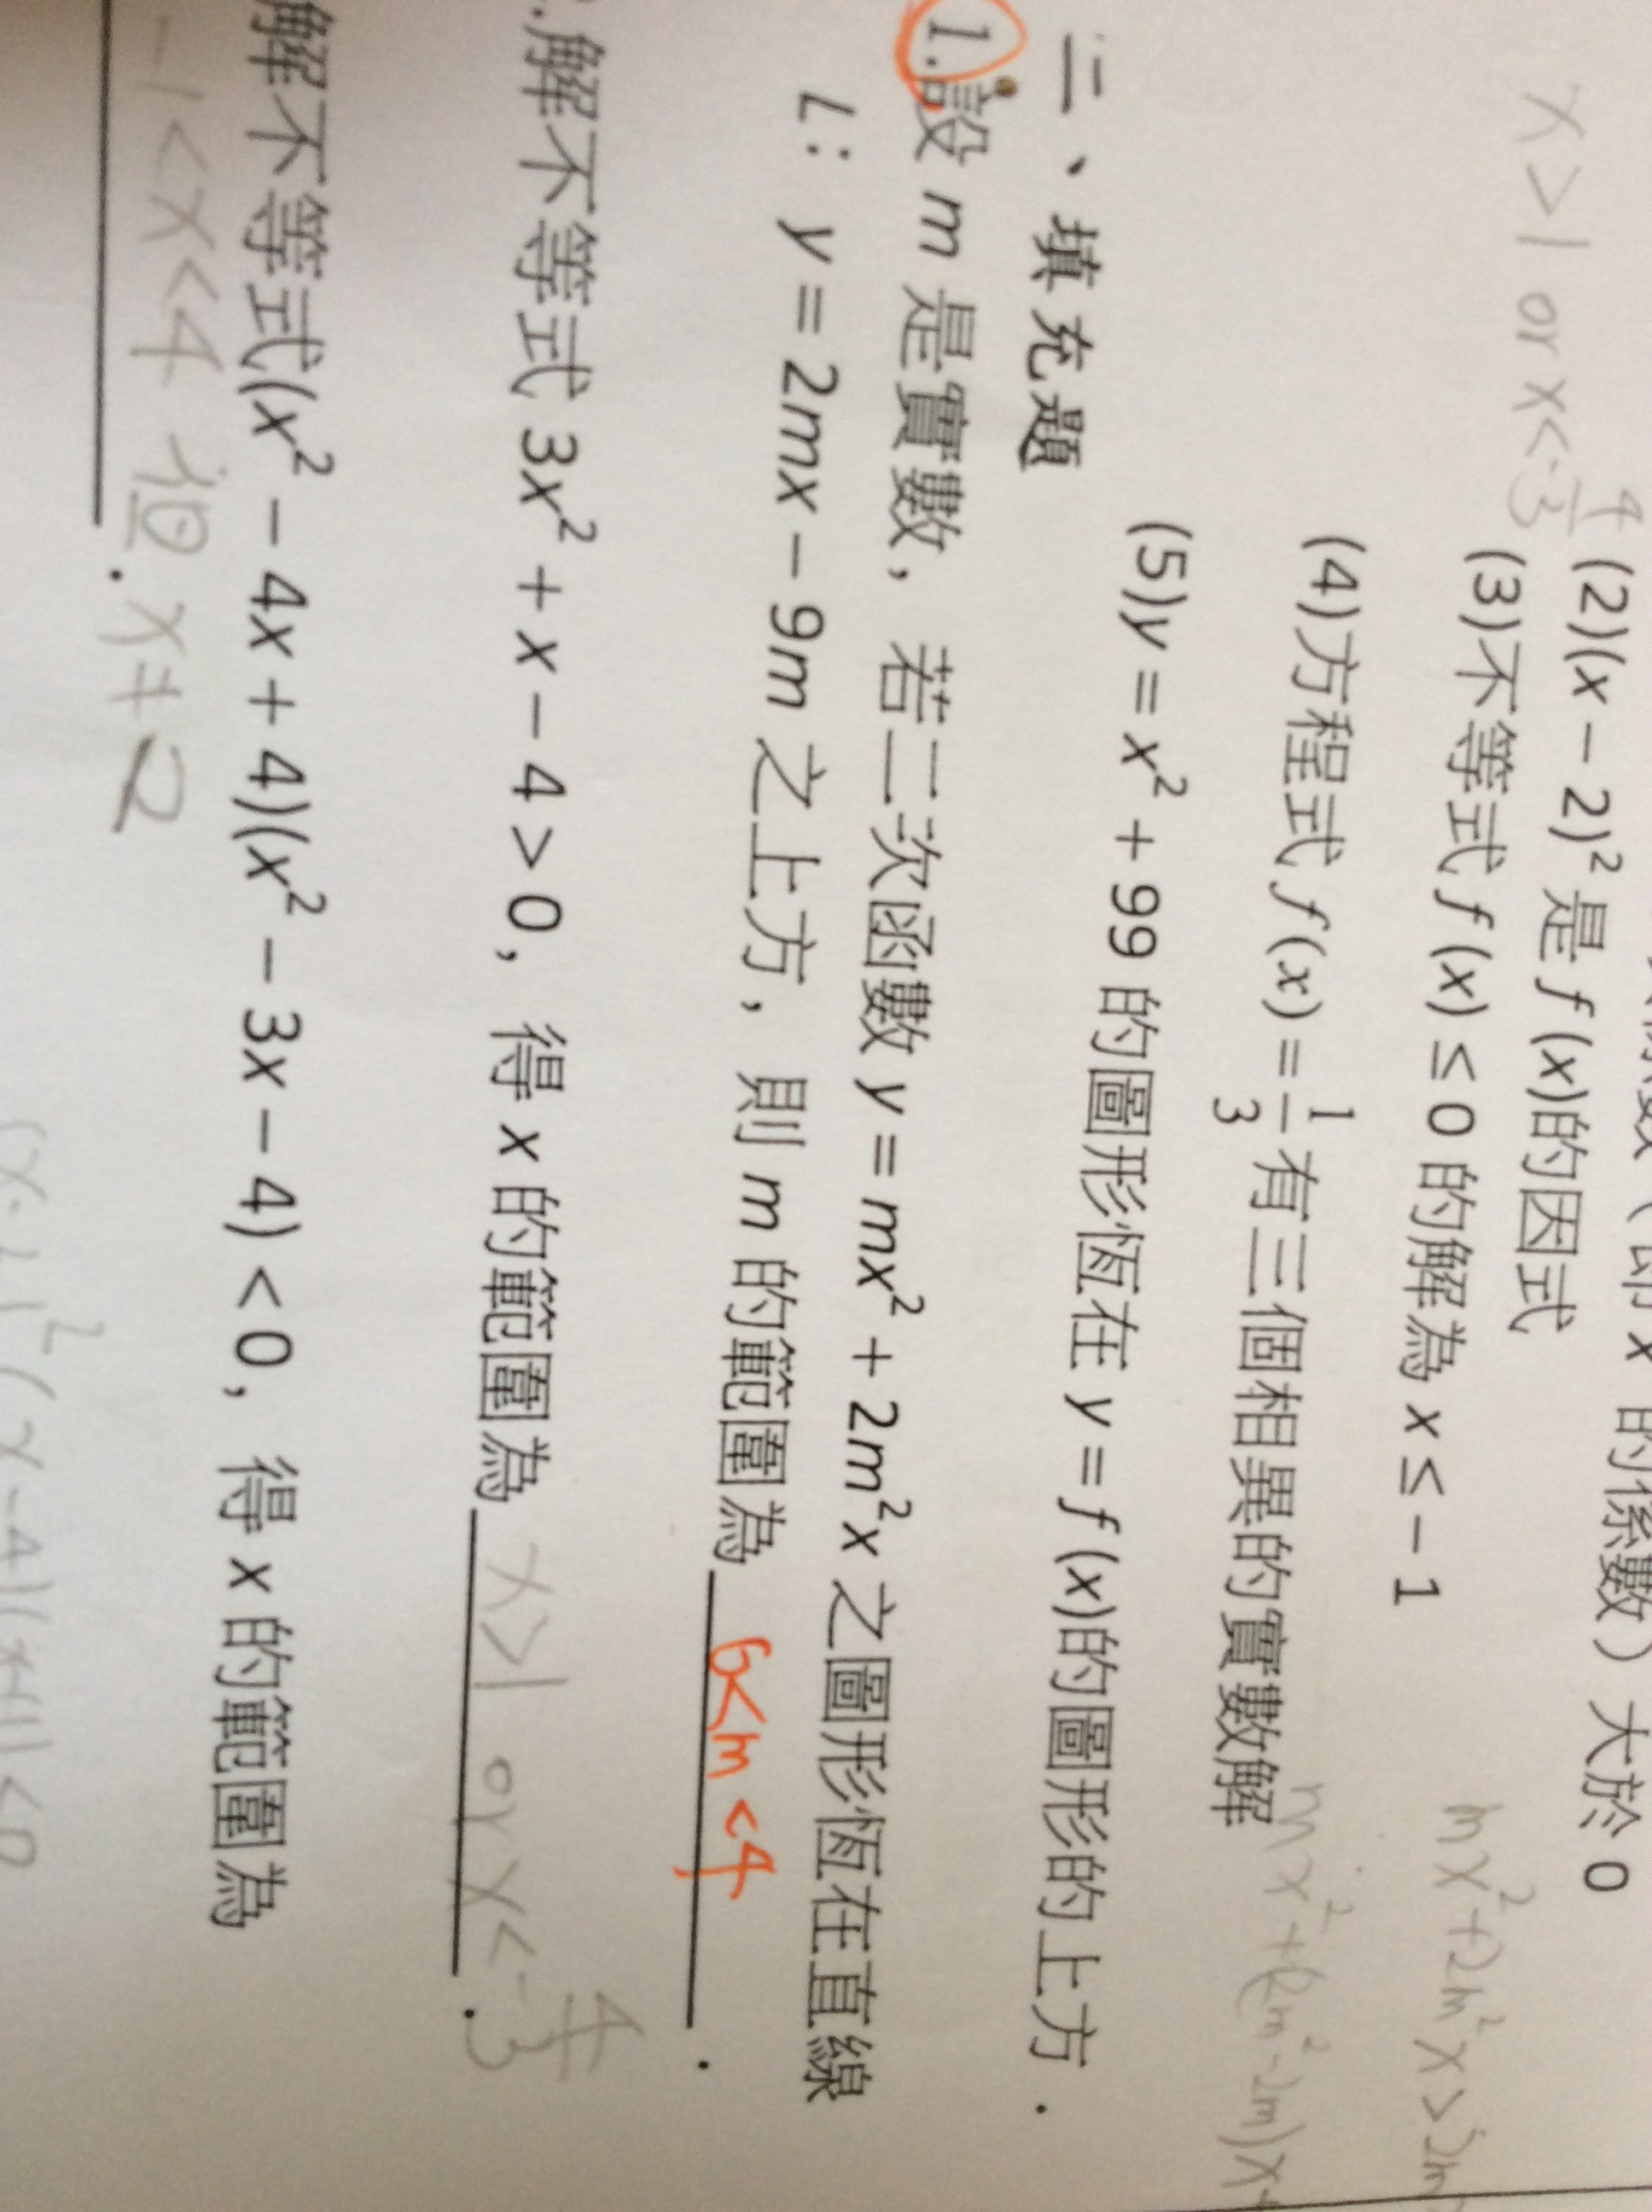 x>1 or x<-4/3
(2)(x－2)²是 f (x)的因式
(3)不等式 f (x) ≤ 0 的解為 x ≤ －1
(4)方程式 f (x) = 1/3 有三個相異的實數解
(5)y = x² + 99 的圖形恆在 y = f (x)的圖形的上方．
mx²+2m²x>2m
mx²+(2m²-2m)x
二、填充題
1.設 m 是實數，若二次函數 y = mx² + 2m²x 之圖形恆在直線
L：y = 2mx－9m 之上方，則 m 的範圍為 0<m<4 ．
.解不等式 3x² + x－4 > 0，得 x 的範圍為 x>1 or x<-4/3 ．
解不等式(x²－4x + 4)(x²－3x－4) < 0，得 x 的範圍為
-1<x<4 但 x≠2 ．
(x-2)²(x-4)(x+1)<0